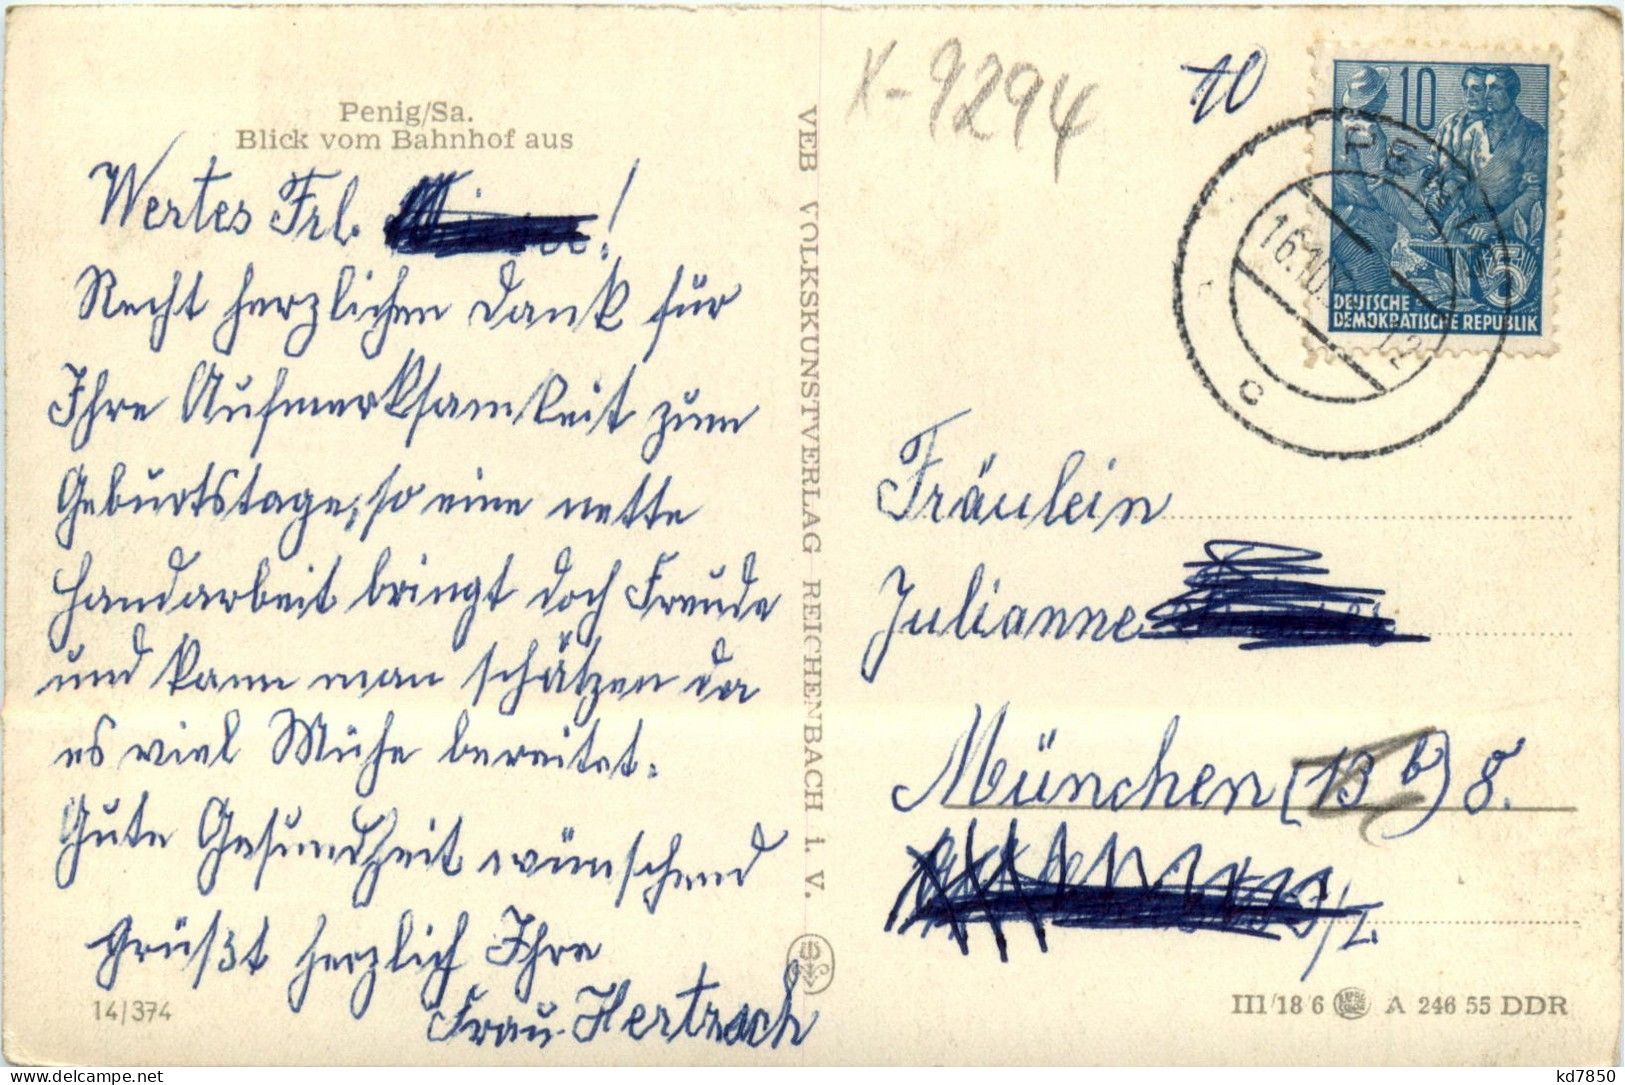 Penig/Sa.
Blick vom Bahnhof aus
Wertes Frl. !
Recht herzlichen Dank für
Ihre Aufmerksamkeit zum
Geburtstage, so eine nette
Handarbeit bringt doch Freude
und kann man schätzen da
es viel Mühe bereitet.
Gute Gesundheit wünschend
grüßt herzlich Ihre
Frau Hertzsch
14/374
VEB VOLKSKUNSTVERLAG REICHENBACH i. V.
K-9294
10
10
DEUTSCHE
DEMOKRATISCHE REPUBLIK
5
PENIG
16.10.
12
c
Fräulein
Julianne
München (13 b) 8.
/I
III/18 6 A 246 55 DDR
www.delcampe.net
kd7850